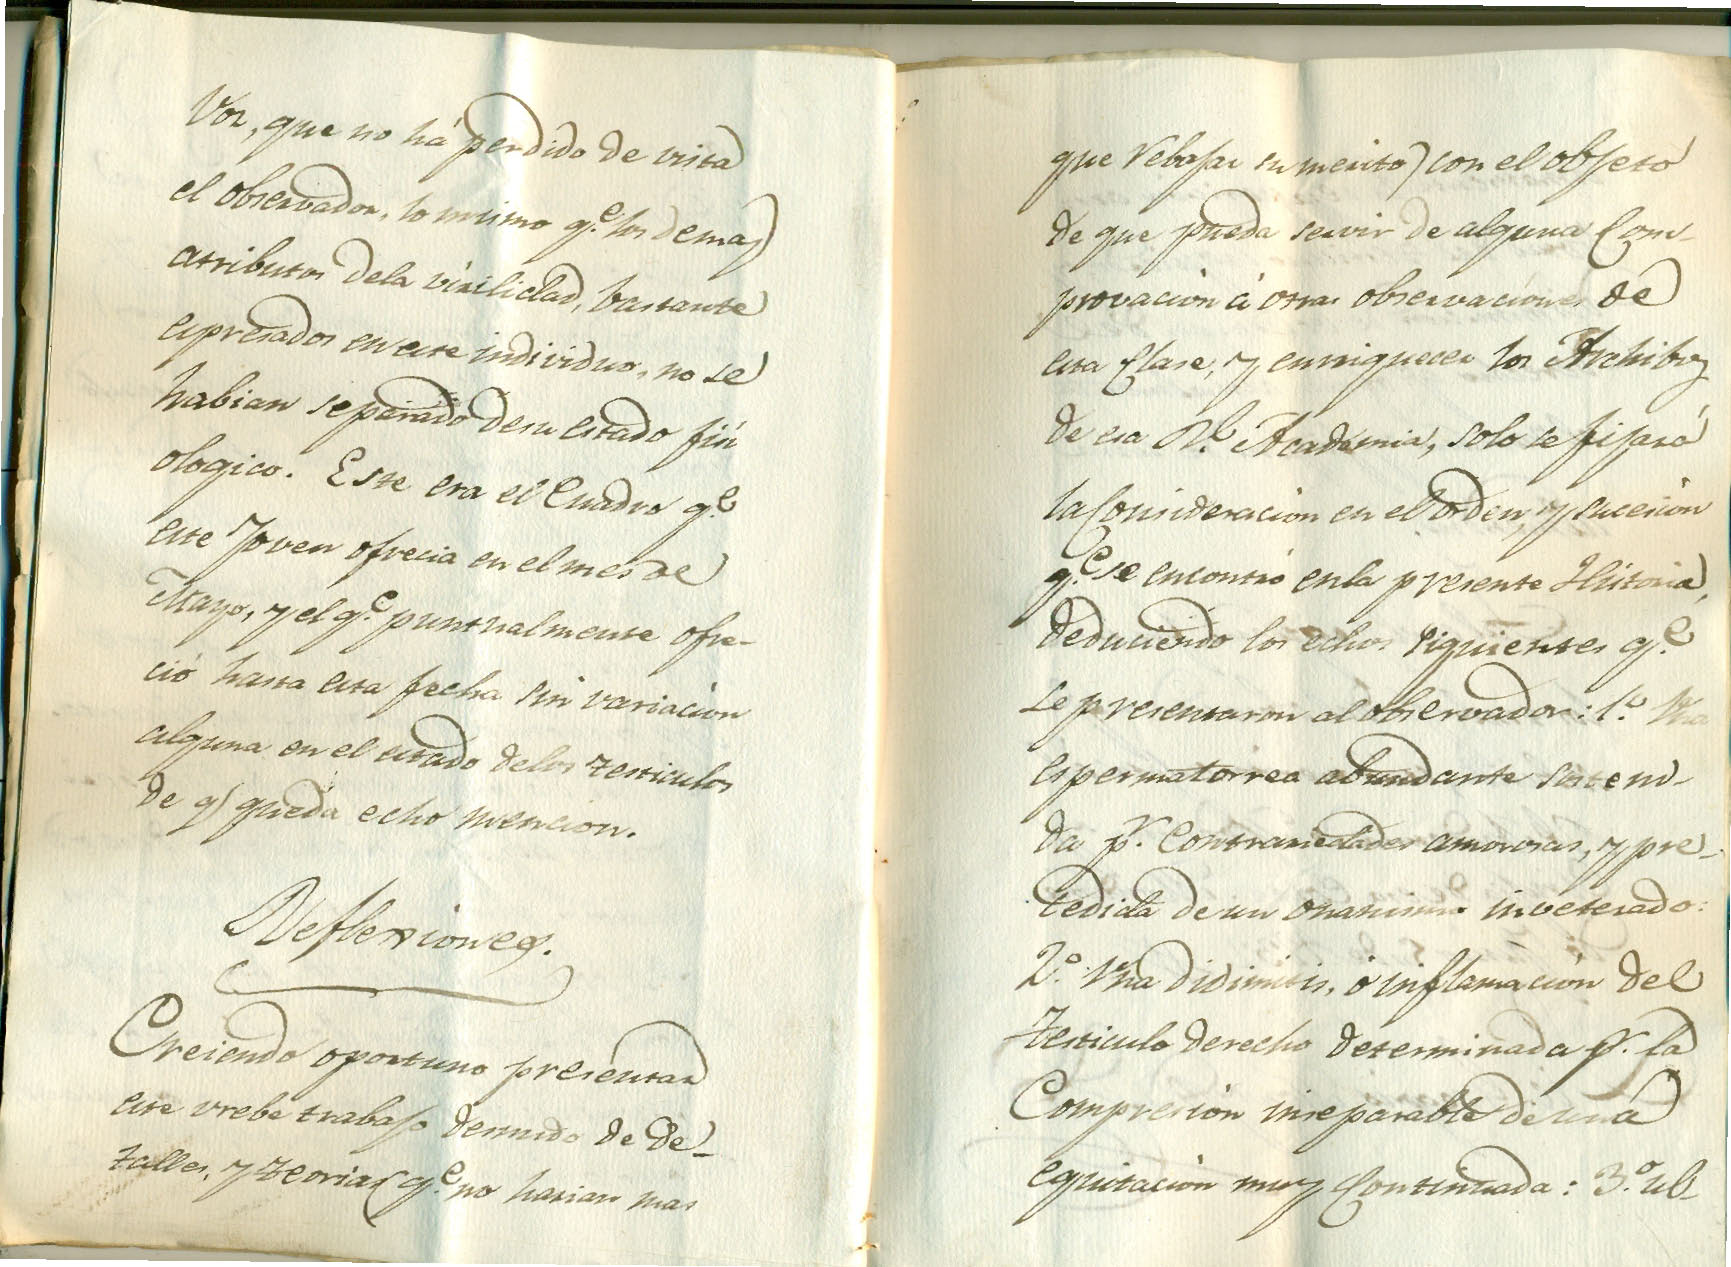 Voz, que no há perdido de vista
el observador, lo mismo q.e los demas
atributos dela virilidad, bastante
espresados en este individuo, no se
habian separado desu estado fisi
ologico. Este era el Cuadro q.e
este Joven ofrecia en el mes de
Mayo, y el q.e puntualmente ofre-
ció hasta esta fecha sin variación
alguna en el estado delos testiculos
de q.e queda echo mencion.
Reflexiones.
Creiendo oportuno presentar
este vrebe trabajo desnudo de de-
talles, y teorias (q.e no harian mas
que rebajar su merito) con el objeto
de que pueda servir de alguna Com-
provación á otras observaciones de
esta Clase, y enrriquecer los Archibos
de esa R.l Academia, solo se fijará
la Consideración en el orden, y sucesion
q.e se encontró enla presente Historia,
deduciendo los echos siguientes q.e
se presentaron al observador: 1.o Una
espermatorrea abundante sosteni-
da p.r Contrariedades amorosas, y pre-
cedida de un onanismo inveterado:
2.o Una didimitis, ó inflamación del
testiculo derecho determinada p.r la
Compresión inseparable de una
equitación muy Continuada: 3.o ul-